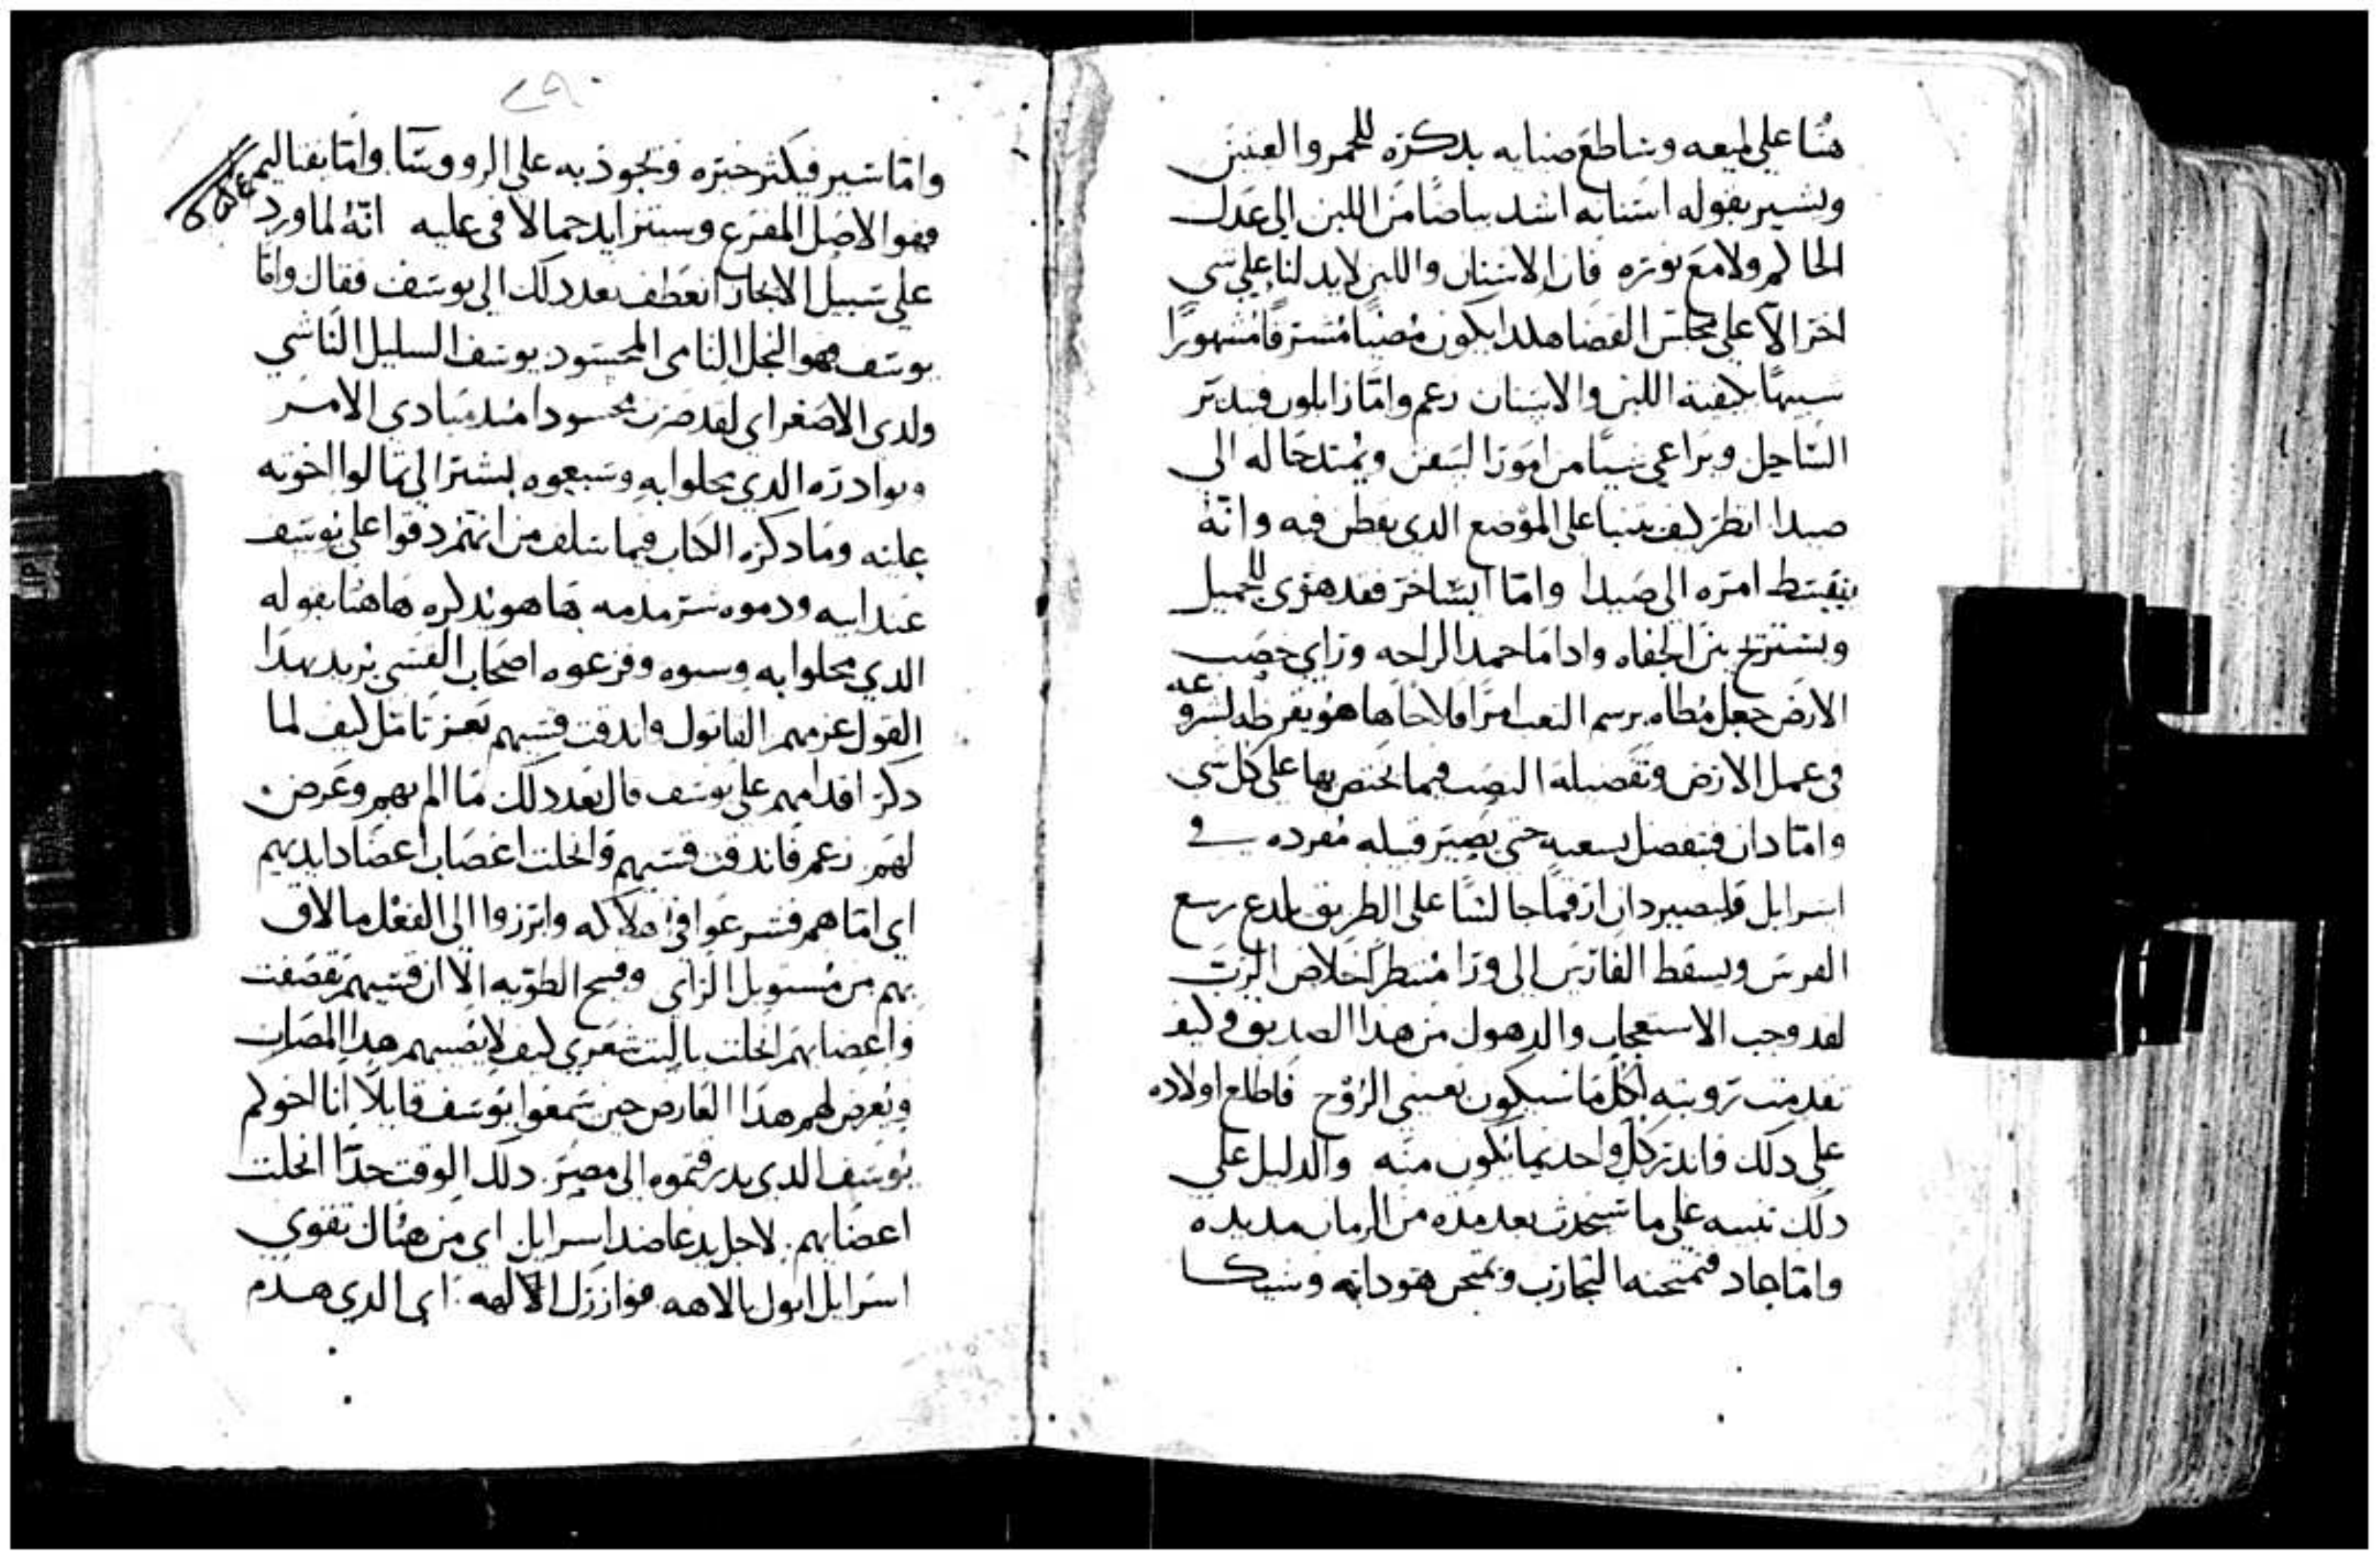 هنا على لميعه وساطع ضيايه بدكره للخمر والعينين
ويشير بقوله اسنانه اشد بياضا من اللبن الى عدل
الحاكم ولامع نوره فان الاسنان واللبن لا يدلنا على شي
اخر الا على مجلس القضا هلدا يكون مضيا مشرفا مشهورا
شبيها اللبن والاسنان زعم واما زابلون فيدبر
الساحل ويراعي شيا من امور السفن ويمتد حاله الى
صيدا انظر كيف ينبا على الموضع الدي يقطن فيه وانه
ينبسط امره الى صيدا واما ايساخر فقد هوى للجميل
ويستريح بين الحفاه وادا ما حمد الراحه وراي خصب
الارض جعل مطاه برسم التعب امرا فلاحا ها هو يقرظه لشروعه
في عمل الارض وتفضيله النصب فيما يختص بها على كل شي
واما دان فيفصل لسعبه حتى يصير قبيله مفرده في
اسرايل وليصير دان ارقما جالسا على الطريق يلدع رسع
الفرس ويسقط الفارس الى ورا منتظرا لخلاص الرب
لقد وجب الاستعجاب والدهول من هذا الصديق وكيف
تقدمت رويته لكل ما سيكون بعيني الروح فاطلع اولاده
على دلك واندر كل واحد بما يكون منه والدليل على
دلك تنبيه على ما سيحدث بعد مده من الزمان مديده
واما جاد فتمتحنه التجارب وتمتحن هو دانه وسيكا
٢٩٠
واما اشير فيكثر خبزه ويجود به على الروسا واما يفتاليم
فهو الاصل المفرع وسيتزايد جمالا في عليه انه لما ورد
على سبيل الايجاز انعطف بعد دلك الى يوسف فقال واما
يوسف فهو النجل النامي المحسود يوسف السليل الناشي
ولدي الاصغر اي لقد صرت محسودا مند مبادي الامر
وبوادره الدي محلوا به وسبعوه يشير الى ما لوا اخوته
عليه وما دكره الكتاب فيما سلف من انهم زدقوا على يوسف
عند ابيه ودموه شر مدمه ها هو يدكره هاهنا بقوله
الدي محلوا به وسبوه وفزعوه اصحاب القسي يريد بهدا
القول عزمهم القاتول واندقت قسيهم بعز تامل كيف لما
دكر اقدامهم على يوسف قال بعد دلك ما الم بهم وعرض
لهم زعم فاندقت قسيهم وانحلت اعصاب اعضاد ايديهم
اي اما هم فشرعوا في هلاكه وابرزوا الى الفعل ما لاق
بهم من مستوبل الراي وقبيح الطويه الا ان قسيهم تقصفت
واعضايهم انحلت يا ليت شعري كيف لا يصيبهم هدا المصاب
ويعرض لهم هدا العارض حين سمعوا يوسف قايلا انا اخوكم
يوسف الدي بدرقتموه الى مصر دلك الوقت حدا انحلت
اعضايهم لاجل يد عاضد اسرايل اي من هناك تقوي
اسرايل ابوك بالاهه موازرك الاله اي الدي هدم